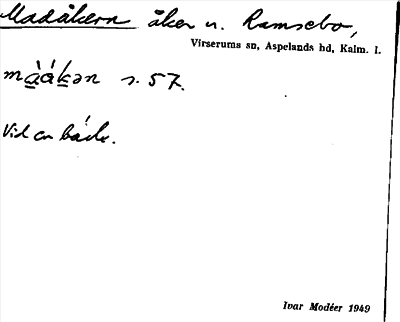 Madåkern åker u. Ramsebo,
Virserums sn, Aspelands hd, Kalm. l.
mà̲á̲k̲ən s. 57.
Vid en bäck.
Ivar Modéer 1949